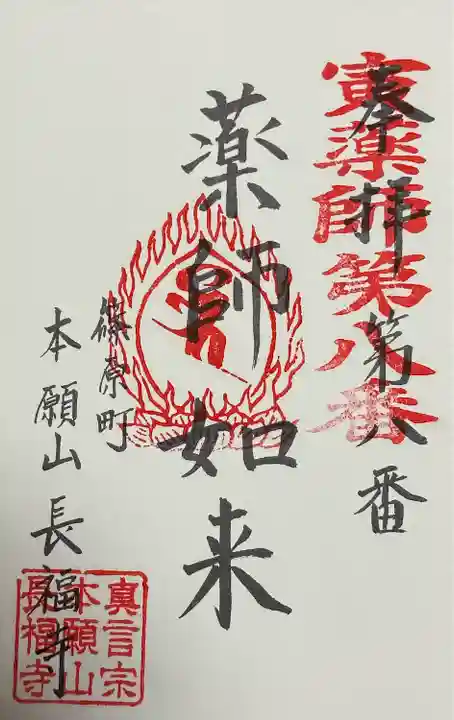 寅薬師第八番
奉拝 第八番
薬師如来
篠原町
本願山 長福寺
真言宗
本願山
長福寺